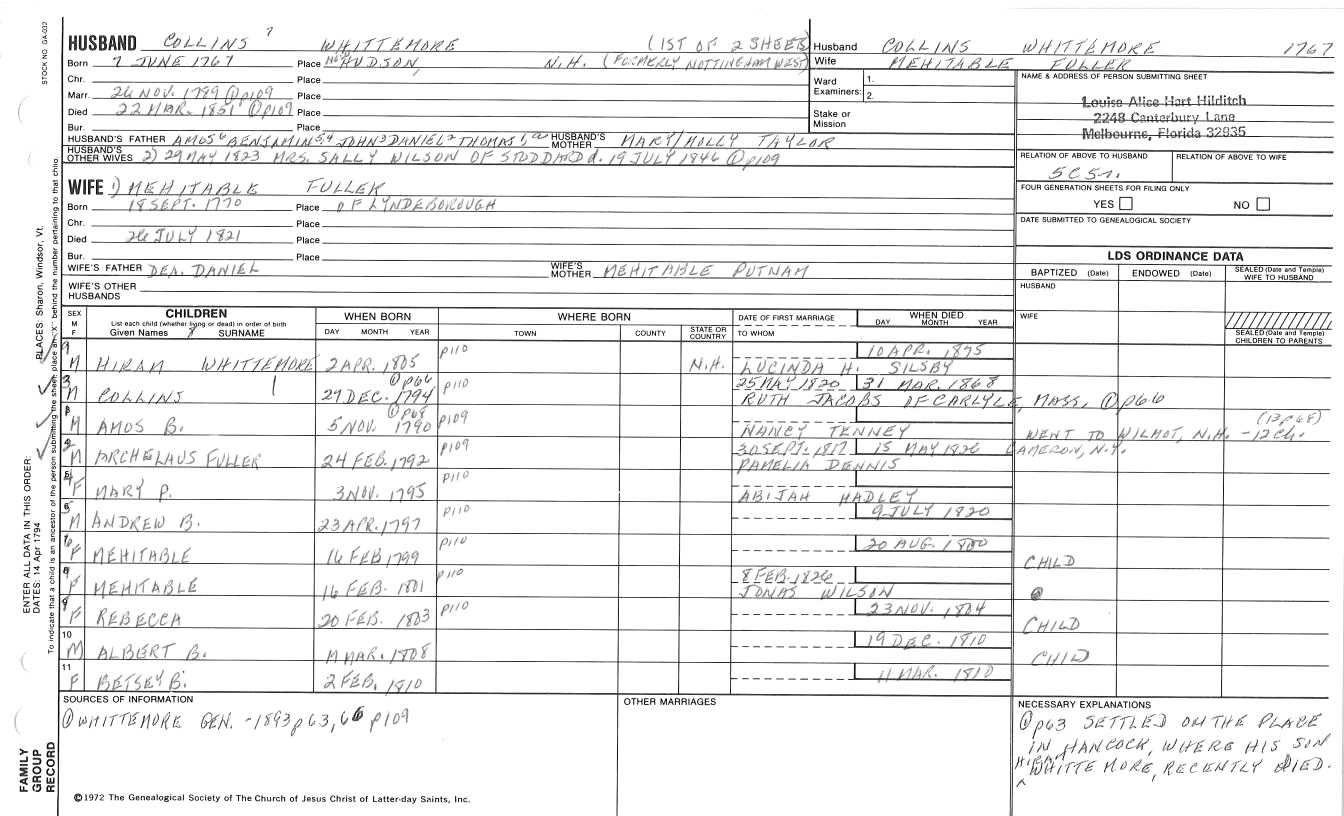 STOCK NO. GA-032
HUSBAND COLLINS 7 WHITTEMORE (1ST OF 2 SHEETS)
Born 7 JUNE 1767 Place HUDSON, N.H. (FORMERLY NOTTINGHAM WEST)
Chr. Place
Marr. 26 NOV. 1789 @p109 Place
Died 22 MAR. 1851 @p109 Place
Bur. Place
HUSBAND'S FATHER AMOS6 BENJAMIN5,4 JOHN3 DANIEL2 THOMAS1, HUSBAND'S MOTHER MARY/MOLLY TAYLOR
HUSBAND'S OTHER WIVES 2) 29 MAY 1823 MRS. SALLY WILSON OF STODDARD d. 19 JULY 1846 @p109
WIFE 1) MEHITABLE FULLER
Born 18 SEPT. 1770 Place OF LYNDEBOROUGH
Chr. Place
Died 26 JULY 1821 Place
Bur. Place
WIFE'S FATHER DEA. DANIEL WIFE'S MOTHER MEHITABLE PUTNAM
WIFE'S OTHER HUSBANDS
Husband COLLINS WHITTEMORE 1767
Wife MEHITABLE FULLER
Ward 1.
Examiners: 2.
Stake or Mission
NAME & ADDRESS OF PERSON SUBMITTING SHEET
Louise Alice Hart Hilditch
2248 Canterbury Lane
Melbourne, Florida 32935
RELATION OF ABOVE TO HUSBAND RELATION OF ABOVE TO WIFE
5C5r.
FOUR GENERATION SHEETS FOR FILING ONLY
YES NO
DATE SUBMITTED TO GENEALOGICAL SOCIETY
LDS ORDINANCE DATA
BAPTIZED (Date) ENDOWED (Date) SEALED (Date and Temple) WIFE TO HUSBAND
HUSBAND
WIFE
SEALED (Date and Temple) CHILDREN TO PARENTS
SEX M F CHILDREN List each child (whether living or dead) in order of birth Given Names SURNAME
WHEN BORN DAY MONTH YEAR
WHERE BORN TOWN COUNTY STATE OR COUNTRY
DATE OF FIRST MARRIAGE TO WHOM
WHEN DIED DAY MONTH YEAR
9 M HIRAM WHITTEMORE 2 APR. 1805 p110 N.H. LUCINDA H. SILSBY 10 APR. 1875
3 M COLLINS @p66 29 DEC. 1794 p110 25 MAY 1820 31 MAR. 1868 RUTH JACOBS OF CARLYLE, MASS, @p66
M AMOS B. @p68 5 NOV. 1790 p109 NANCY TENNEY WENT TO WILMOT, N.H. - 12 Ch. (13 p68)
2 M ARCHELAUS FULLER 24 FEB. 1792 p109 30 SEPT. 1817 15 MAY 1826 CAMERON, N.Y. PAMELIA DENNIS
F MARY P. 3 NOV. 1795 p110 ABIJAH HADLEY
M ANDREW B. 23 APR. 1797 p110 9 JULY 1820
F MEHITABLE 16 FEB 1799 p110 20 AUG. 1800 CHILD
F MEHITABLE 16 FEB. 1801 p110 8 FEB. 1826 JONAS WILSON @
F REBECCA 20 FEB. 1803 p110 23 NOV. 1804 CHILD
10 M ALBERT B. MAR. 1808 19 DEC. 1810 CHILD
11 F BETSEY B. 2 FEB. 1810 11 MAR. 1810
SOURCES OF INFORMATION
@ WHITTEMORE GEN. - 1893 p63, 66 p109
OTHER MARRIAGES
NECESSARY EXPLANATIONS
@p63 SETTLED ON THE PLACE
IN HANCOCK, WHERE HIS SON
HIRAM WHITTEMORE, RECENTLY DIED.
FAMILY GROUP RECORD
©1972 The Genealogical Society of The Church of Jesus Christ of Latter-day Saints, Inc.
ENTER ALL DATA IN THIS ORDER:
DATES: 14 Apr 1794
PLACES: Sharon, Windsor, Vt.
To indicate that a child is an ancestor of the person submitting the sheet, place an "X" behind the number pertaining to that child.